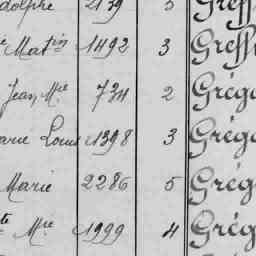 dolphe 2139 5 Greff
e Matin 1492 3 Greff
Jean Mie 734 2 Grég
arie Louis 1398 3 Grég
Marie 2286 5 Grég
te Mie 1999 4 Grég